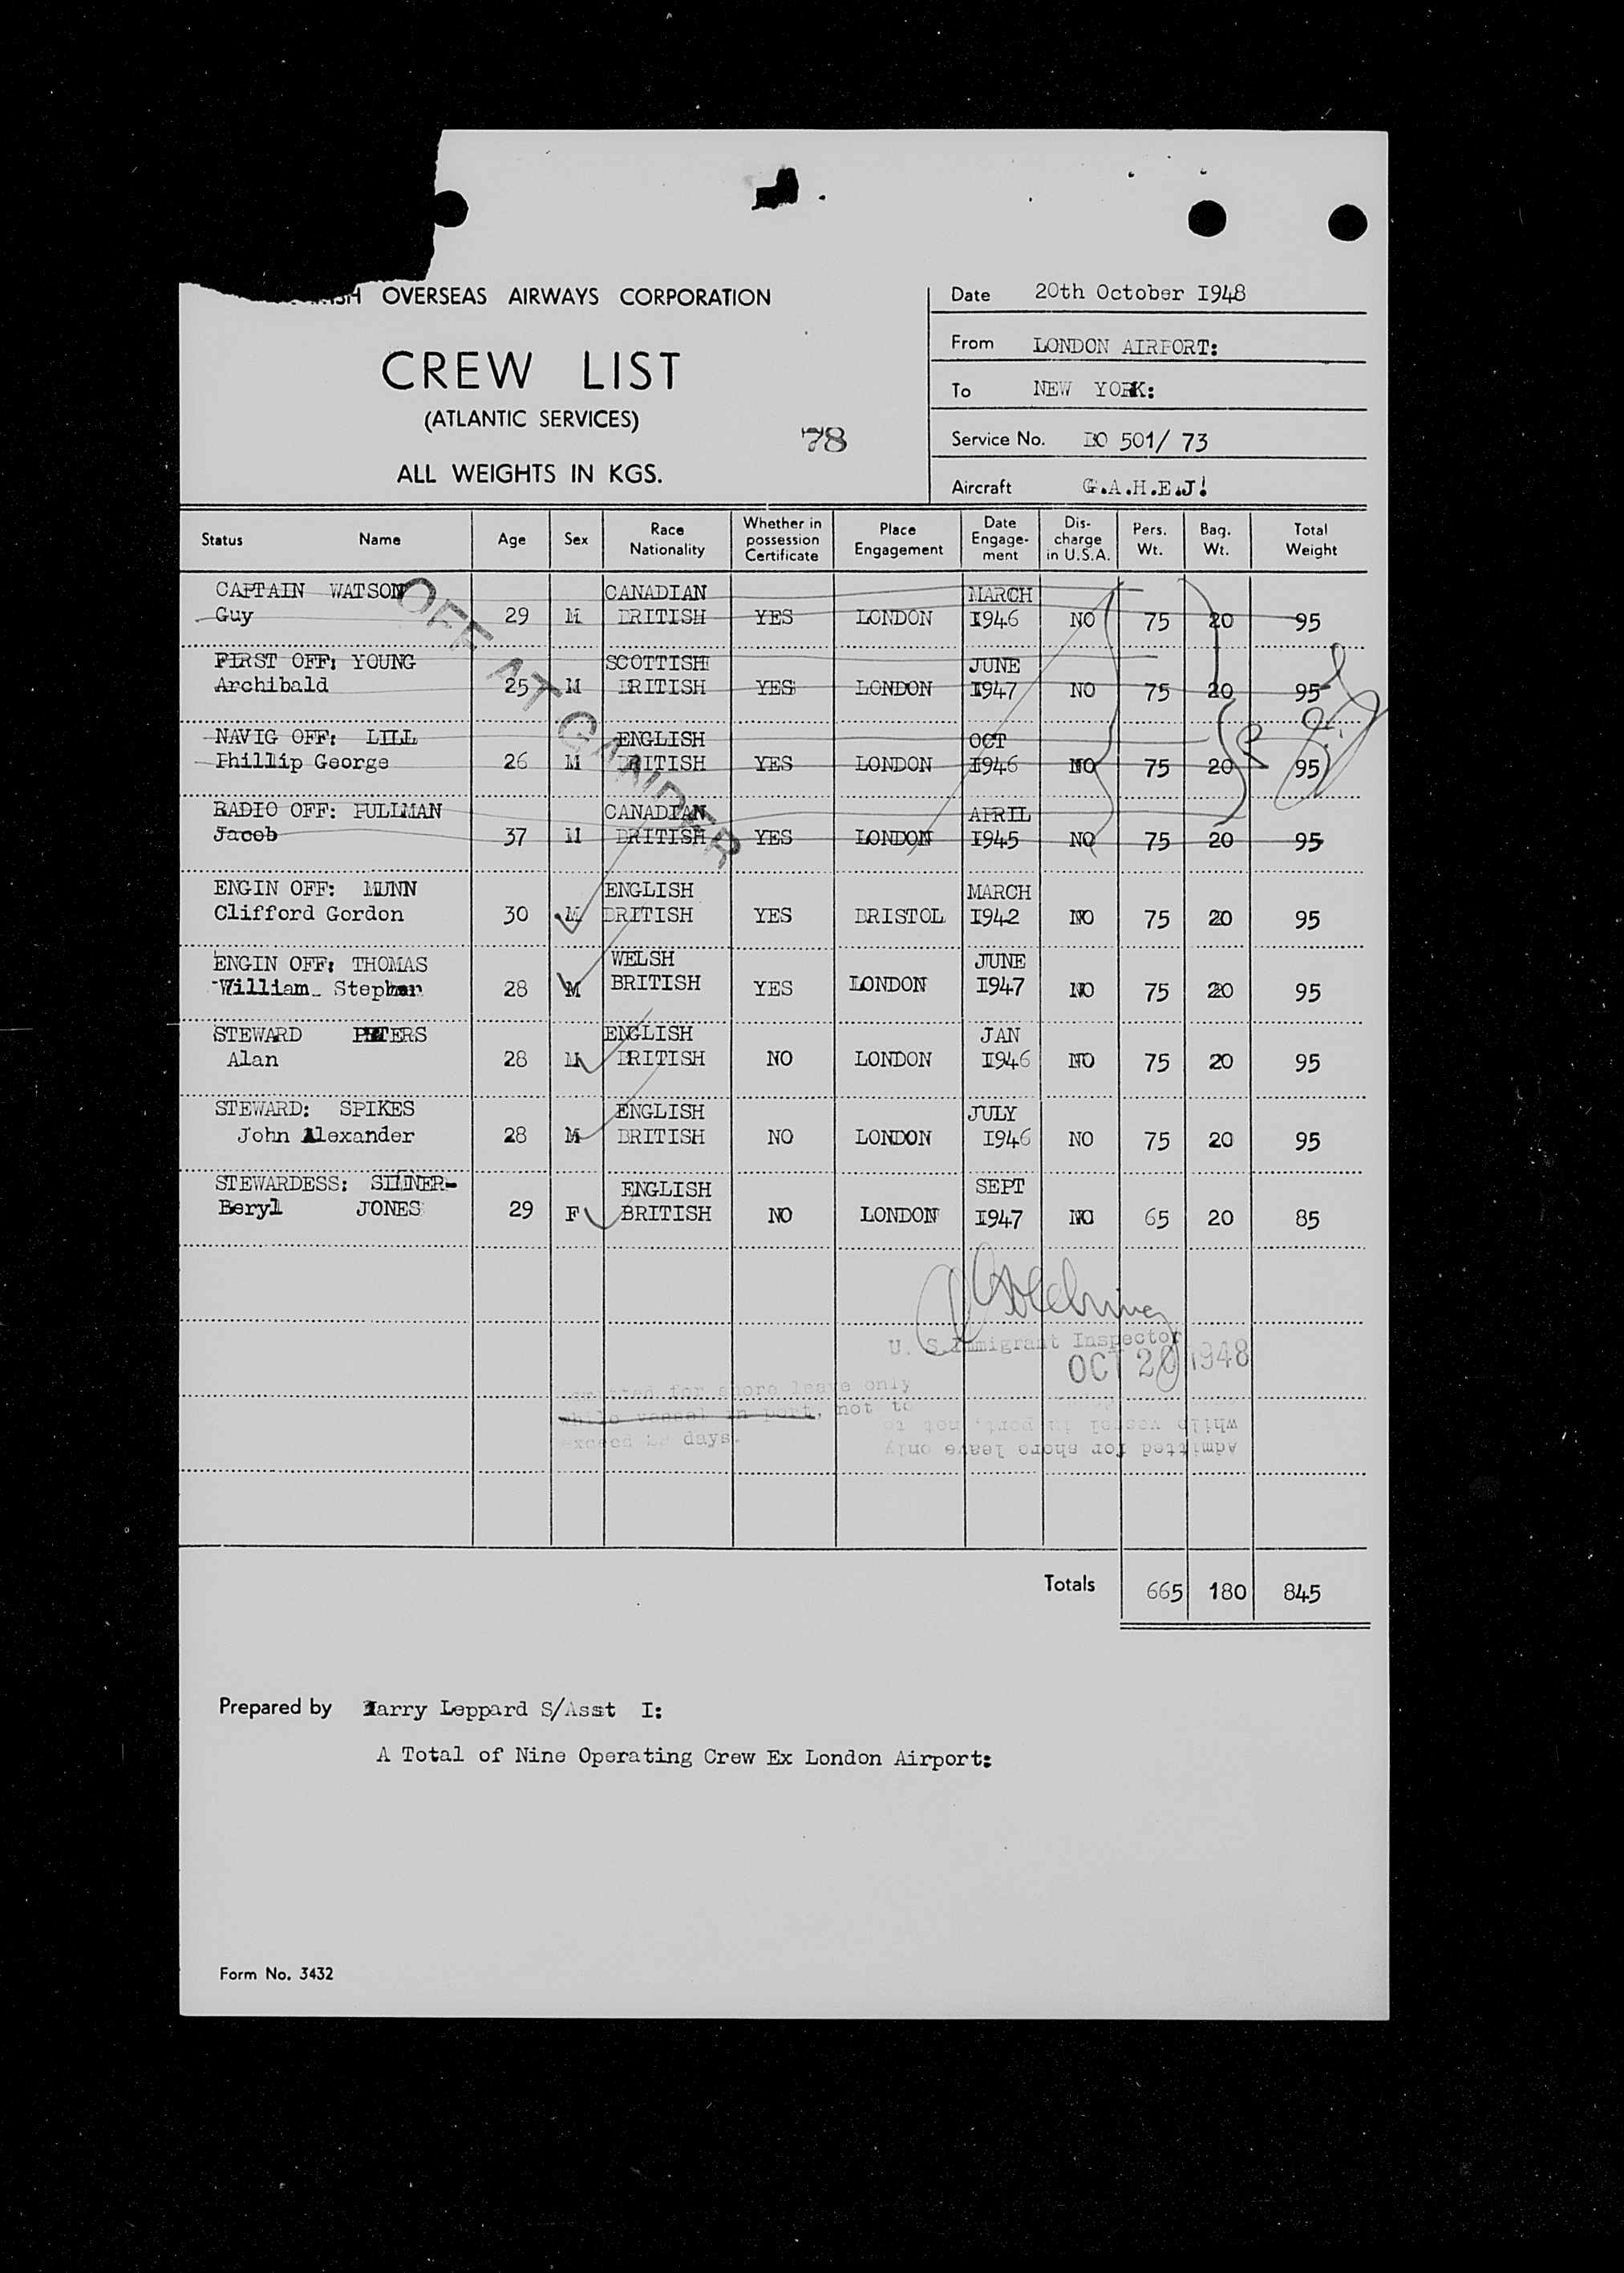 OVERSEAS AIRWAYS CORPORATION
CREW LIST
(ATLANTIC SERVICES)
78
ALL WEIGHTS IN KGS.
Date 20th October I948
From LONDON AIRPORT:
To NEW YORK:
Service No. BO 501/ 73
Aircraft G.A.H.E.J!
Status Name Age Sex Race Nationality Whether in possession Certificate Place Engagement Date Engage-ment Dis-charge in U.S.A. Pers. Wt. Bag. Wt. Total Weight
CAPTAIN WATSON CANADIAN MARCH
Guy 29 M BRITISH YES LONDON I946 NO 75 20 95
FIRST OFF: YOUNG SCOTTISH JUNE
Archibald 25 M BRITISH YES LONDON I947 NO 75 20 95
NAVIG OFF: LILL ENGLISH OCT
Phillip George 26 M BRITISH YES LONDON I946 NO 75 20 95
RADIO OFF: PULLMAN CANADIAN APRIL
Jacob 37 M BRITISH YES LONDON I945 NO 75 20 95
OFF AT GANDER
ENGIN OFF: MUNN ENGLISH MARCH
Clifford Gordon 30 M BRITISH YES BRISTOL I942 NO 75 20 95
ENGIN OFF: THOMAS WELSH JUNE
William Stephen 28 M BRITISH YES LONDON I947 NO 75 20 95
STEWARD PETERS ENGLISH JAN
Alan 28 M BRITISH NO LONDON I946 NO 75 20 95
STEWARD: SPIKES ENGLISH JULY
John Alexander 28 M BRITISH NO LONDON I946 NO 75 20 95
STEWARDESS: ENGLISH SEPT
Beryl JONES 29 F BRITISH NO LONDON I947 NO 65 20 85
U. S. Immigrant Inspector
OCT 20 1948
shore leave only
while vessel in port, not to
exceed days.
while vessel in port, not to
Admitted for shore leave only
Totals 665 180 845
Prepared by Harry Leppard S/Asst I:
A Total of Nine Operating Crew Ex London Airport:
Form No. 3432